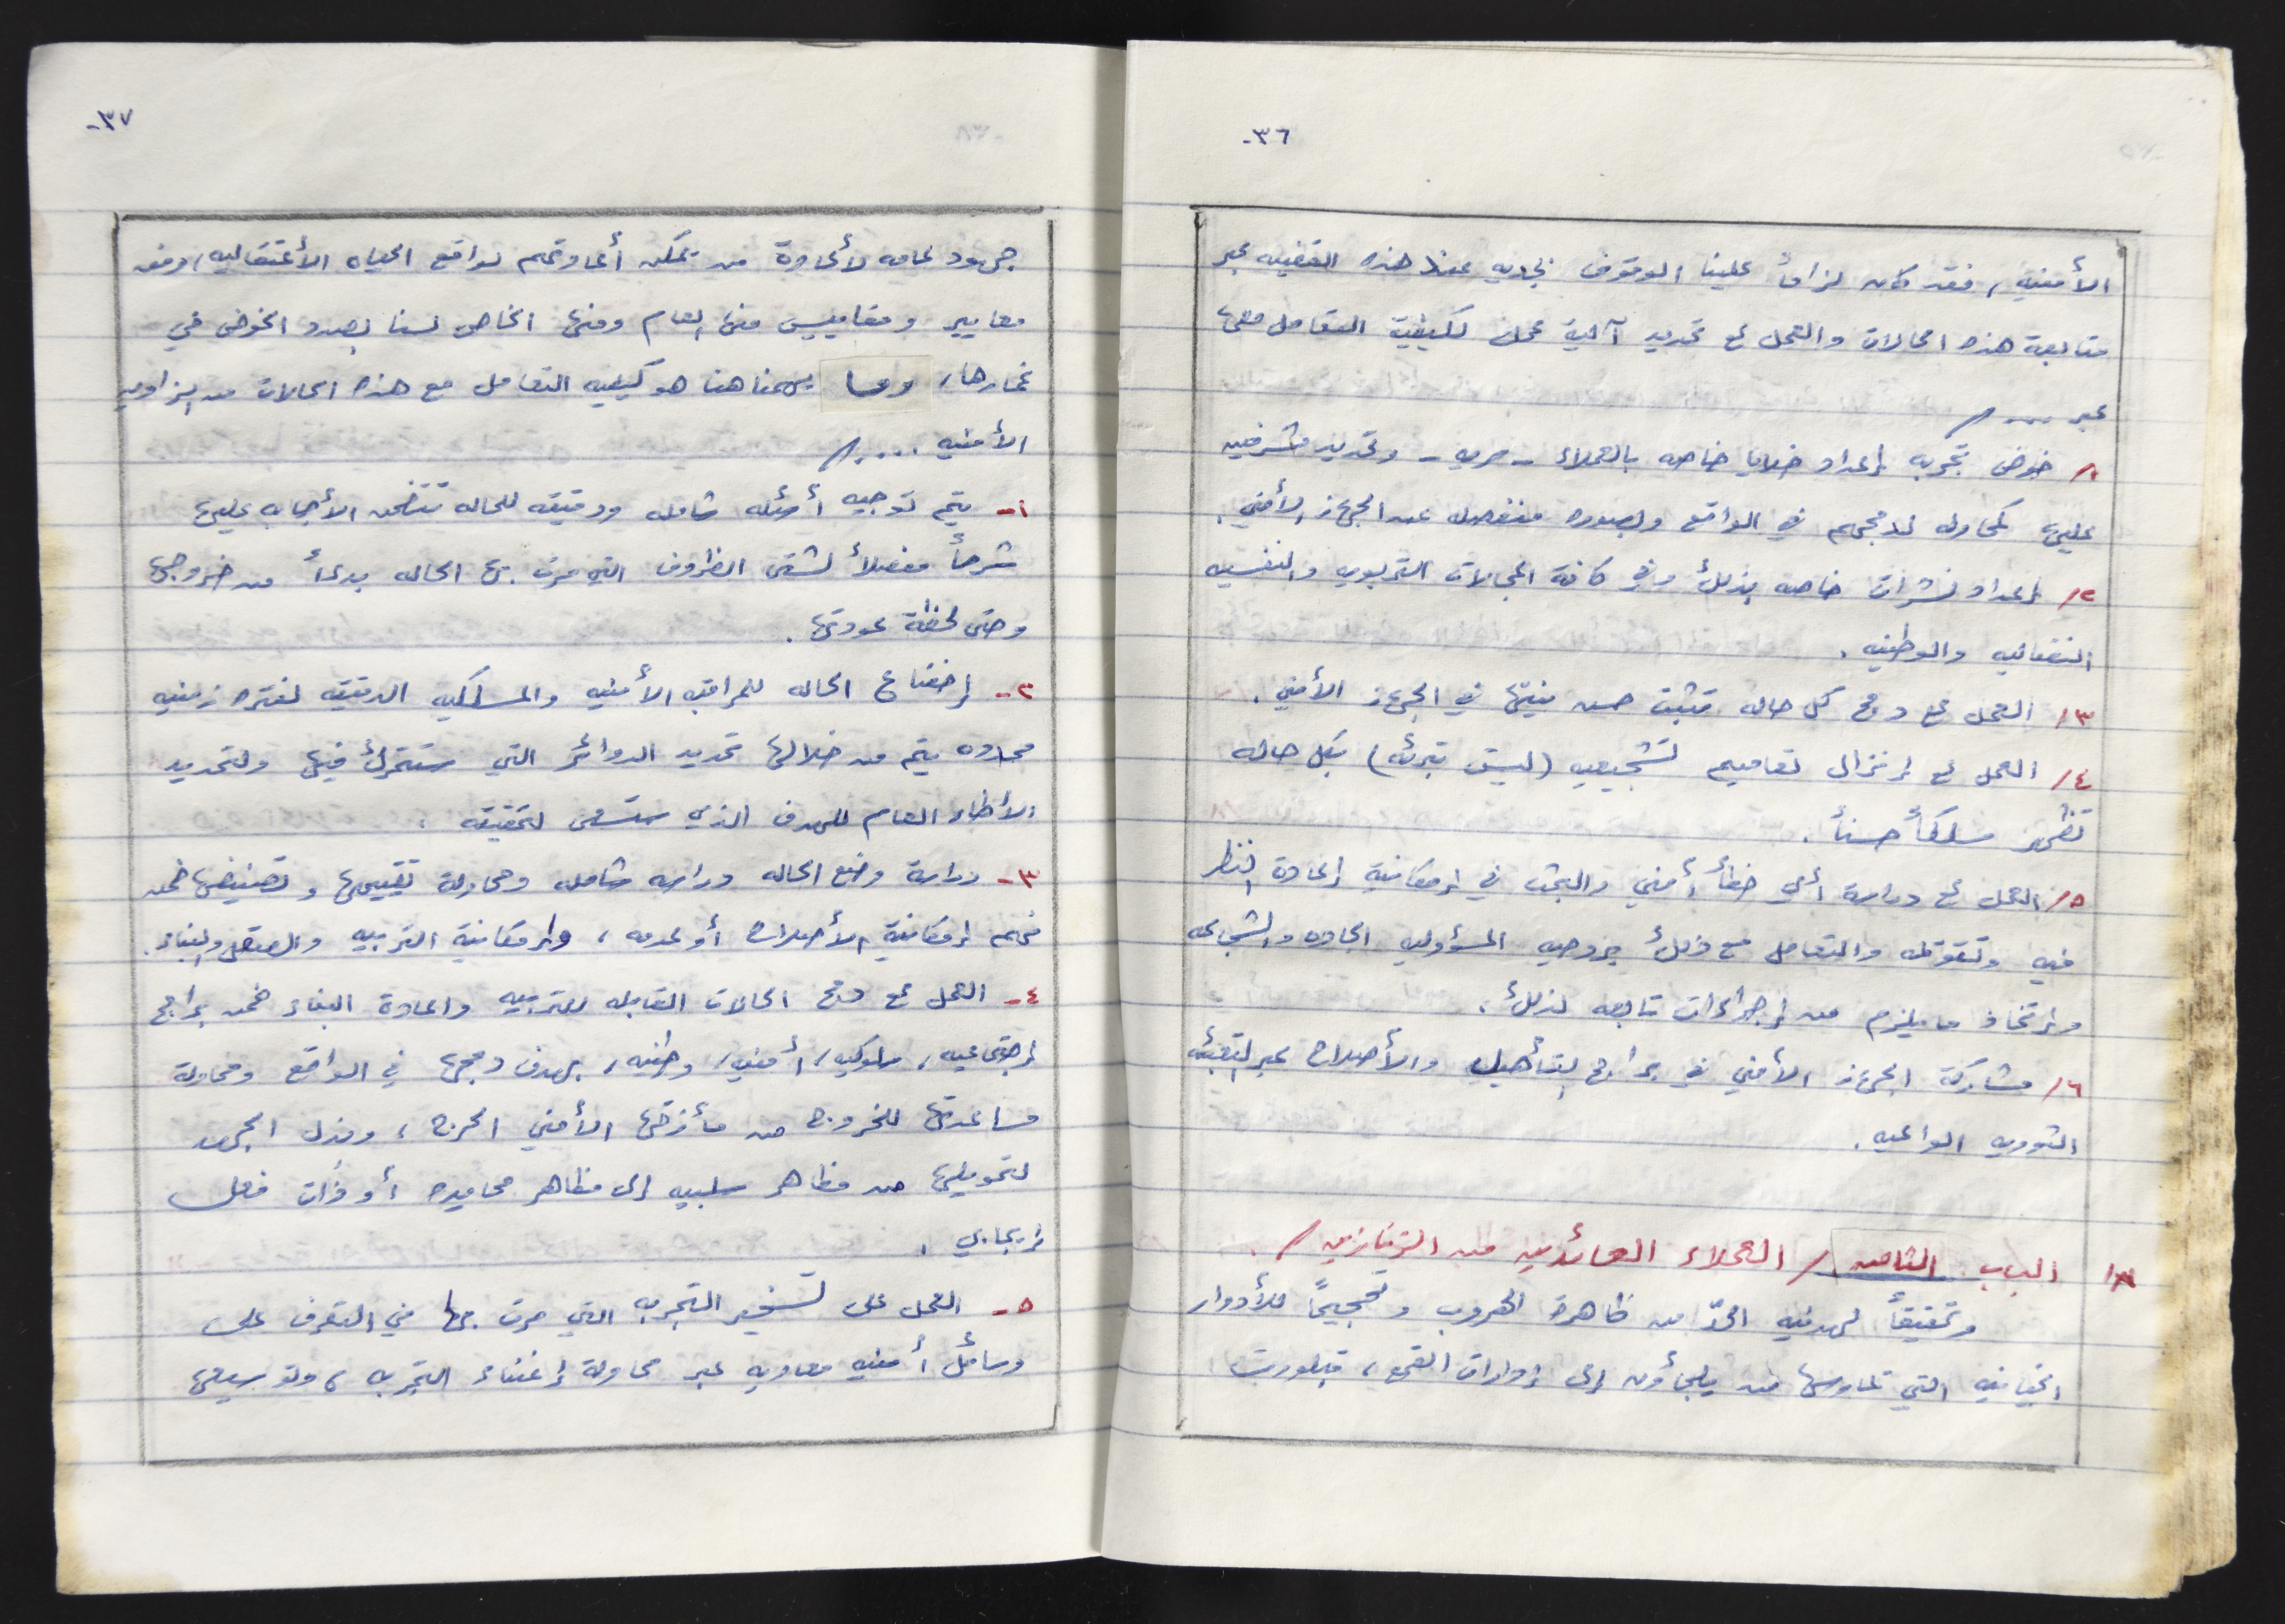 -٣٦
الأمنيه، فقد كان لزاماً علينا الوقوف بجديه عند هذه القضيه عبر
متابعة هذه الحالات والعمل ع تحديد آلية عمل لكيفية التعامل معها
عبر .... /
١/ خوض تجربه إعداد خلايا خاصه بالعملاء - سريه - وتحديد مشرفين
عليها كمحاوله لدمجهم في الواقع وبصوره منفصله عن الجهاز الأمني.
٢/ إعداد نشرات خاصه بذلك وفي كافة المجالات التربويه والنفسيه
النضاليه والوطنيه.
٣/ العمل ع دمج كل حاله تثبت حسن نيتها في الجهاز الأمني.
٤/ العمل ع إنزال تعاميم تشجيعيه (ليست تبرئه) بكل حاله
تظهر مسلكاً حسناً.
٥/ العمل ع دراسة أي خطأ أمني والبحث في إمكانية إعادة النظر
فيه وتقويمه والتعامل مع ذلك بروحيه المسؤوليه الجاده والشجاعه
وإتخاذ ما يلزم من إجراءات تابعه لذلك.
٦/ مشاركة الجهاز الأمني في برامج التأهيل والأصلاح عبر التعبئه
الثوريه الواعيه.
١٨/ الباب الثامن / العملاء العائدين من الزنازين /.
وتحقيقاً لهدفيه الحدّ من ظاهرة الهروب وتحجيماً للأدوار
الخيانيه التي تمارسها من يلجأون إلى إدارات القمع، تبلورت
-٣٧
جهود عامه لأعادة من يمكن أعادتهم لواقع الحياه الأعتقاليه، وضمن
معايير ومقاييس منها العام ومنها الخاص لسنا بصدد الخوض في
غمارها، وما يهمنا هنا هو كيفيه التعامل مع هذه الحالات من الزاويه
الأمنيه .... /
١- يتم توجيه أسئله شامله ودقيقه للحاله تتضمن الأجابه عليها
شرحاً مفصلاً لشتى الظروف التي مرت بها الحاله بدءاً من خروجها
وحتى لحظة عودتها.
٢- إخضاع الحاله للمراقبه الأمنيه والمسلكيه الدقيقه لفتره زمنيه
محدوده يتم من خلالها تحديد الدوائر التي ستتحرك فيها ولتحديد
الأطار العام للهدف الذي ستسعى لتحقيقه.
٣- دراسة وضع الحاله دراسه شامله ومحاولة تقييمها وتصنيفها ضمن
فهم إمكانية الأصلاح أو عدمه، وإمكانية التربيه والصقل والبناء.
٤- العمل ع دمج الحالات القابله للتربيه واعادة البناء ضمن برامج
إجتماعيه، سلوكيه، أمنيه، وطنيه، بهدف دمجها في الواقع ومحاولة
مساعدتها للخروج من مأزقها الأمني الحرج، وبذل الجهد
لتحويلها من مظاهر سلبيه إلى مظاهر محايده أو ذات فعل
إيجابي.
٥- العمل على تسخير التجربه التي مرت بها في التعرف على
وسائل أمنيه معاديه عبر محاولة إغناء التجربه، وتوسيعها